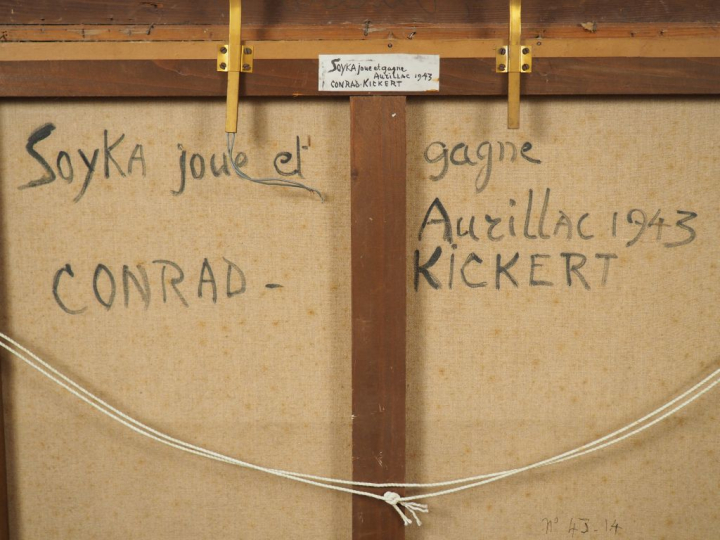 SOYKA joue et gagne
AURILLAC 1943
CONRAD-KICKERT
SOYKA joue et gagne
AURILLAC 1943
CONRAD - KICKERT
N° 43-14